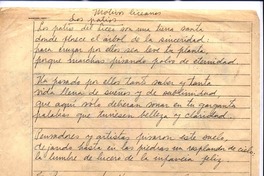 Motivos liceanos
Los patios
Los patios del Liceo son una tierra santa
donde florece el árbol de la sinceridad:
para cruzar por ellos sea leve la planta
porque marchas pisando polvo de eternidad
Ha pasado por ellos tanto saber y tanta
vida llena de sueños y de
que aquí solo deberán sonar en la garganta
palabras que tuviesen belleza y claridad.
Pensadores y artistas pisaron este suelo
dejando hasta en las piedras un resplandor de cielo
la lumbre de lucero de la infancia feliz